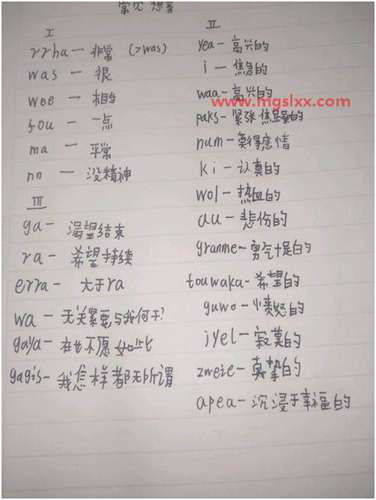 常见想音
I
rrha — 非常 (>was)
was — 很
wee — 相当
fou — 一点
ma — 平常
nn — 没精神
III
ga — 渴望结束
ra — 希望持续
erra — 大于ra
wa — 无关紧要与我何干?
gaya — 再也不愿如此
gagis — 我怎样都无所谓
II
yea — 高兴的
i — 焦急的
waa — 高兴的
www.mgslxx.com
paks — 紧张焦虑的
num — 莫得感情
ki — 认真的
wol — 热血的
au — 悲伤的
granme — 勇气十足的
touwaka — 希望的
guwo — 愤怒的
jyel — 寂寞的
zweie — 真挚的
apea — 沉浸于幸福的